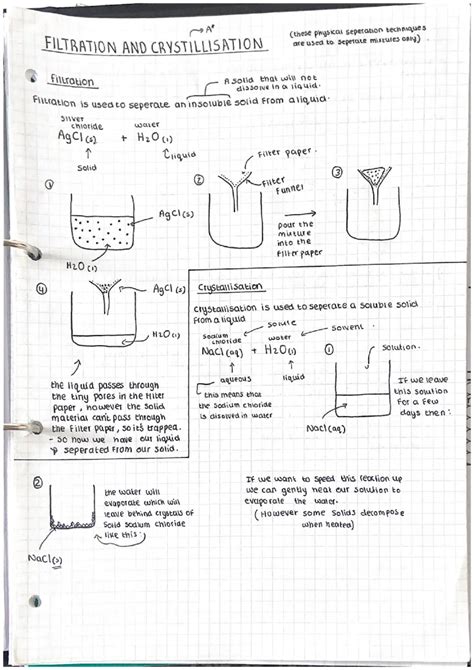 A*
FILTRATION AND CRYSTILLISATION
(these physical seperation techniques
are used to seperate mixtures only)
Filtration
A solid that will not
dissolve in a liquid.
Filtration is used to seperate an insoluble solid from a liquid.
silver
chloride water
AgCl(s) + H2O(l)
Solid liquid
① AgCl(s)
H2O(l)
② Filter paper.
Filter
Funnel
pour the
mixture
into the
filter paper
③
④ AgCl(s)
H2O(l)
the liquid passes through
the tiny pores in the filter
paper, however the solid
material cant pass through
the filter paper, so its trapped.
- so now we have our liquid
seperated from our solid.
Crystallisation
Crystallisation is used to seperate a soluble solid
from a liquid
solute solvent.
sodium
chloride water
NaCl(aq) + H2O(l)
aqueous liquid
this means that
the sodium chloride
is disolved in water
① solution.
NaCl(aq)
If we leave
this solution
for a few
days then:
②
NaCl(s)
the water will
evaporate which will
leave behind crystals of
Solid sodium chloride
like this:
If we want to speed this reaction up
we can gently heat our solution to
evaporate the water.
(However some solids decompose
when heated)